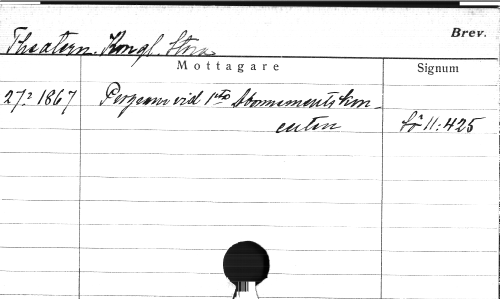 Brev.
Theatern. Kongl. Stora
Mottagare
Signum
27/2 1867 Program vid 1sta Abonnements kon-
certen
Lö 11:425